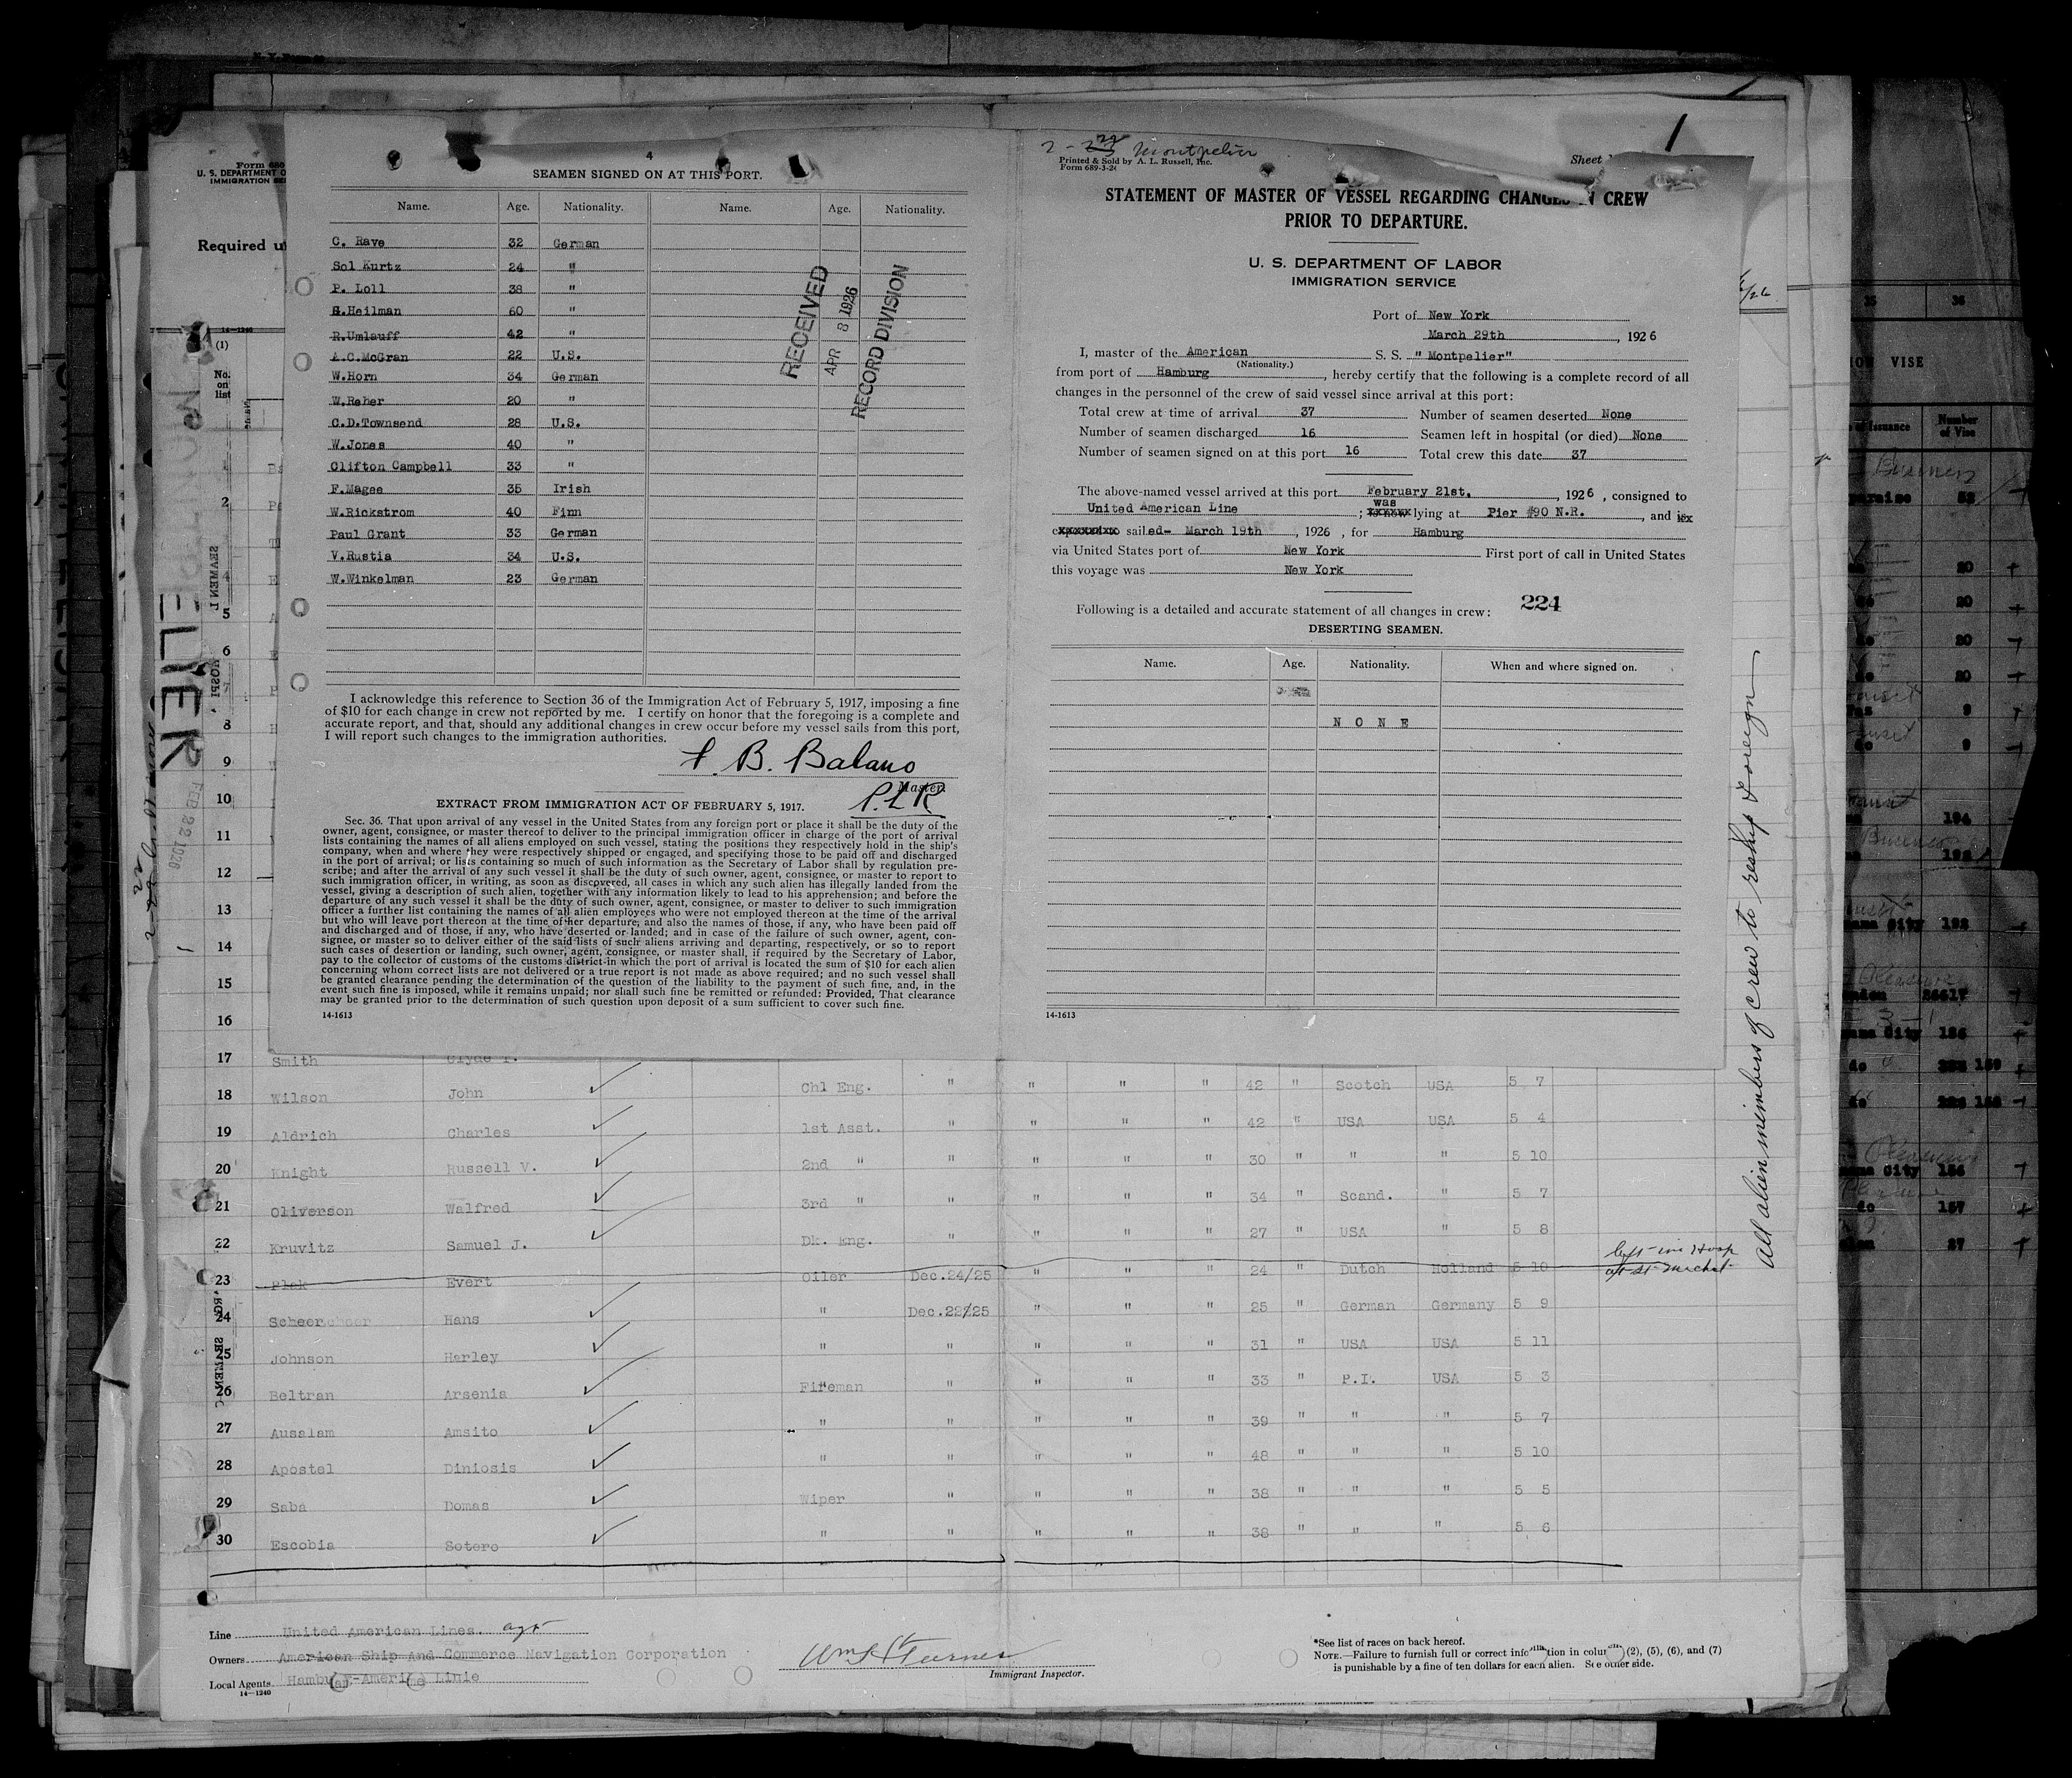 4
SEAMEN SIGNED ON AT THIS PORT.
Name. Age. Nationality. Name. Age. Nationality.
C. Rave 32 German
Sol Kurtz 24 "
P. Loll 38 "
S.Heilman 60 "
R.Umlauff 42 "
A.C.McGran 22 U.S.
W.Horn 34 German
W.Reher 20 "
C.D.Townsend 28 U.S.
W.Jones 40 "
Clifton Campbell 33 "
F.Magee 35 Irish
W.Rickstrom 40 Finn
Paul Grant 33 German
V.Rustia 34 U.S.
W.Winkelman 23 German
RECEIVED
APR 8 1926
RECORD DIVISION
I acknowledge this reference to Section 36 of the Immigration Act of February 5, 1917, imposing a fine
of $10 for each change in crew not reported by me. I certify on honor that the foregoing is a complete and
accurate report, and that, should any additional changes in crew occur before my vessel sails from this port,
I will report such changes to the immigration authorities.
B. Balano
Master.
P.L.R
EXTRACT FROM IMMIGRATION ACT OF FEBRUARY 5, 1917.
Sec. 36. That upon arrival of any vessel in the United States from any foreign port or place it shall be the duty of the
owner, agent, consignee, or master thereof to deliver to the principal immigration officer in charge of the port of arrival
lists containing the names of all aliens employed on such vessel, stating the positions they respectively hold in the ship's
company, when and where they were respectively shipped or engaged, and specifying those to be paid off and discharged
in the port of arrival; or lists containing so much of such information as the Secretary of Labor shall by regulation pre-
scribe; and after the arrival of any such vessel it shall be the duty of such owner, agent, consignee, or master to report to
such immigration officer, in writing, as soon as discovered, all cases in which any such alien has illegally landed from the
vessel, giving a description of such alien, together with any information likely to lead to his apprehension; and before the
departure of any such vessel it shall be the duty of such owner, agent, consignee, or master to deliver to such immigration
officer a further list containing the names of all alien employees who were not employed thereon at the time of the arrival
but who will leave port thereon at the time of her departure, and also the names of those, if any, who have been paid off
and discharged and of those, if any, who have deserted or landed; and in case of the failure of such owner, agent, con-
signee, or master so to deliver either of the said lists of such aliens arriving and departing, respectively, or so to report
such cases of desertion or landing, such owner, agent, consignee, or master shall, if required by the Secretary of Labor,
pay to the collector of customs of the customs district in which the port of arrival is located the sum of $10 for each alien
concerning whom correct lists are not delivered or a true report is not made as above required; and no such vessel shall
be granted clearance pending the determination of the question of the liability to the payment of such fine, and, in the
event such fine is imposed, while it remains unpaid; nor shall such fine be remitted or refunded: Provided, That clearance
may be granted prior to the determination of such question upon deposit of a sum sufficient to cover such fine.
14-1613
Montpelier
Printed & Sold by A. L. Russell, Inc.
Form 689-3-24
Sheet
1
STATEMENT OF MASTER OF VESSEL REGARDING CHANGES IN CREW
PRIOR TO DEPARTURE.
U. S. DEPARTMENT OF LABOR
IMMIGRATION SERVICE
Port of New York
March 29th, 1926
I, master of the American S. S. "Montpelier"
(Nationality.)
from port of Hamburg, hereby certify that the following is a complete record of all
changes in the personnel of the crew of said vessel since arrival at this port:
Total crew at time of arrival 37 Number of seamen deserted None
Number of seamen discharged 16 Seamen left in hospital (or died) None
Number of seamen signed on at this port 16 Total crew this date 37
The above-named vessel arrived at this port February 21st, 1926, consigned to
United American Line; was lying at Pier #90 N.R., and
sailed- March 19th, 1926, for Hamburg
via United States port of New York First port of call in United States
this voyage was New York
Following is a detailed and accurate statement of all changes in crew: 224
DESERTING SEAMEN.
Name. Age. Nationality. When and where signed on.
NONE
14-1613
All alien members of crew to reship foreign
Form 680
U. S. DEPARTMENT O
IMMIGRATION SE
Required u
14-1240
(1)
No.
on
list
FEB 22 1926
2
4
5
6
8
9
10
11
12
13
14
15
16
17 Smith Clyde T.
18 Wilson John Chl Eng. " " " " 42 " Scotch USA 5 7
19 Aldrich Charles 1st Asst. " " " " 42 " USA USA 5 4
20 Knight Russell V. 2nd " " " " " 30 " " " 5 10
21 Oliverson Walfred 3rd " " " " " 34 " Scand. " 5 7
22 Kruvitz Samuel J. Dk. Eng. " " " 27 " USA " 5 8
23 Plek Evert Oiler Dec.24/25 " " " 24 " Dutch Holland 5 10 left in Hosp
at St
24 Scheer Hans " Dec.22/25 " " " 25 " German Germany 5 9
25 Johnson Harley " " " " " 31 " USA USA 5 11
26 Beltran Arsenia Fireman " " " " 33 " P.I. USA 5 3
27 Ausalam Amsito " " " " " 39 " " " 5 7
28 Apostel Diniosis " " " " " 48 " " " 5 10
29 Saba Domas Wiper " " " " 38 " " " 5 5
30 Escobia Sotero " " " " " 38 " " " 5 6
Line United American Lines. agt
Owners American Ship And Commerce Navigation Corporation
Local Agents Hamburg-American Linie
14-1240
Immigrant Inspector.
*See list of races on back hereof.
NOTE.—Failure to furnish full or correct information in columns (2), (5), (6), and (7)
is punishable by a fine of ten dollars for each alien. See other side.
35 36
VISE
Number
of Vise